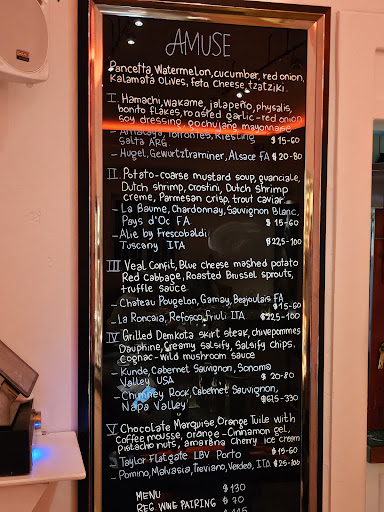 AMUSE
Pancetta, Watermelon, cucumber, red onion,
Kalamata Olives, feta cheese, tzatziki.
I. Hamachi, wakame, jalapeño, physalis,
bonito flakes, roasted garlic-red onion
soy dressing, gochujang mayonnaise
- Amalaya, Torrontes, Riesling
Salta ARG $ 15-60
- Hugel, Gewurtztraminer, Alsace FA $ 20-80
II Potato-coarse mustard soup, guanciale,
Dutch shrimp, crostini, Dutch shrimp
creme, Parmesan crisp, trout caviar
- La Baume, Chardonnay, Sauvignon Blanc,
Pays d'Oc FA $ 15-60
- Alie by Frescobaldi
Tuscany ITA $22,5-100
III Veal Confit, Blue cheese mashed potato
Red cabbage, Roasted Brussel sprouts,
truffle sauce
- Chateau Pougelon, Gamay, Beajoulais FA
$15-60
- La Roncaia, Refosco, Friuli ITA $22,5-100
IV Grilled Demkota skirt steak, chivepommes
Dauphine, Creamy salsify, Salsify chips,
Cognac-wild mushroom sauce
- Kunde, Cabernet Sauvignon, Sonoma
Valley USA $ 20-80
- Chimney Rock, Cabernet Sauvignon,
Napa Valley $67,5-330
V Chocolate Marquise, Orange Tuile with
Coffee mousse, orange-Cinnamon gel,
Pistacho nuts, amarena Cherry ice cream
- Taylor Flatgate LBV Porto $ 15-60
- Pomino, Malvasia, Treviano, Verdeo, ITA $ 25-100
MENU $ 130
REG WINE PAIRING $ 70